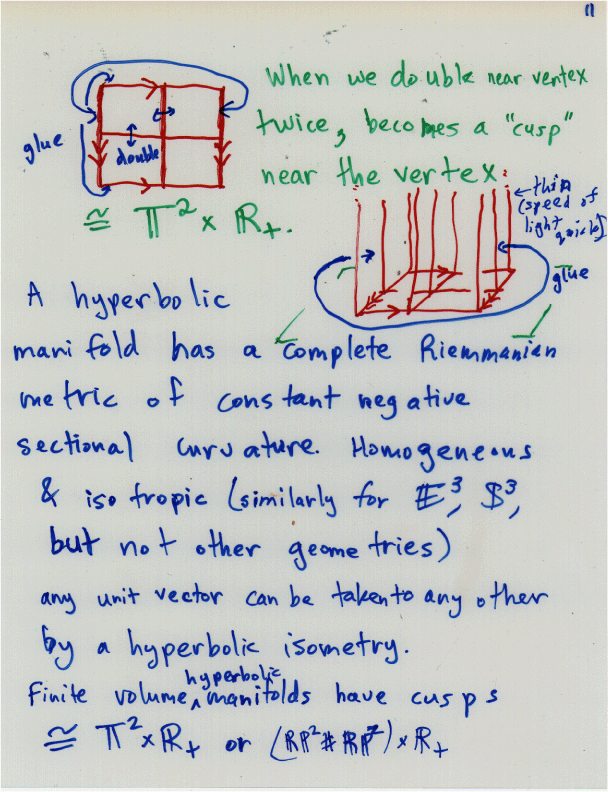 11
When we double near vertex
twice, becomes a "cusp"
near the vertex.
glue
double
≅ 𝕋² × ℝ₊.
← thin
(speed of
light
quick)
glue
A hyperbolic
manifold has a complete Riemmanian
metric of constant negative
sectional curvature. Homogeneous
& isotropic (similarly for 𝔼³, 𝕊³,
but not other geometries)
any unit vector can be taken to any other
by a hyperbolic isometry.
Finite volume ^ hyperbolic manifolds have cusps
≅ 𝕋² × ℝ₊ or (ℝP² # ℝP²) × ℝ₊